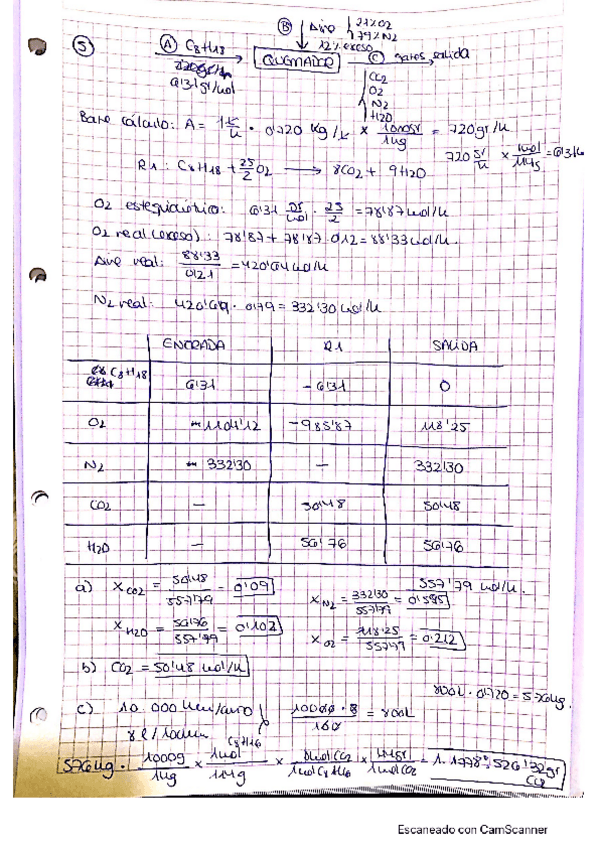 5
A C8H18
B Aire 21% O2
79% N2
12% exceso
QUEMADOR
C gases salida
6'31 mol
CO2
O2
N2
H2O
Base cálculo: A = 0'720 Kg/ × 1000gr/1kg = 720gr/h
R1: C8H18 + 25/2 O2 → 8CO2 + 9H2O
O2 estequiométrico: 6'31 · 25/2 = 78'87 mol/h
O2 real (exceso): 78'87 + 78'87 · 0'12 = 88'33 mol/h.
Aire real: 88'33/0'21 = 420'64 mol/h
N2 real: · 0'79 = 332'30 mol/h
ENTRADA R1 SALIDA
C8H18 6'31 -6'31 0
O2 -985'87 118'25
N2 332'30 — 332'30
CO2 — 50'48 50'48
H2O — 56'76 56'76
557'79 mol/h.
a) xCO2 = 50'48/557'79 = 0'09
xN2 = 332'30/557'79 = 0'595
xH2O = 56'76/557'79 = 0'102
xO2 = 118'25/557'79 = 0'212
b) CO2 = 50'48 mol/h
800L · 0'720 = 576kg.
c) 10.000 km/año
8 l/100km
10000 · 8/100 = 800L
576kg · 1000g/1kg × 1mol C8H18/114g × 8mol CO2/1mol × 44gr/1mol CO2 =
Escaneado con CamScanner